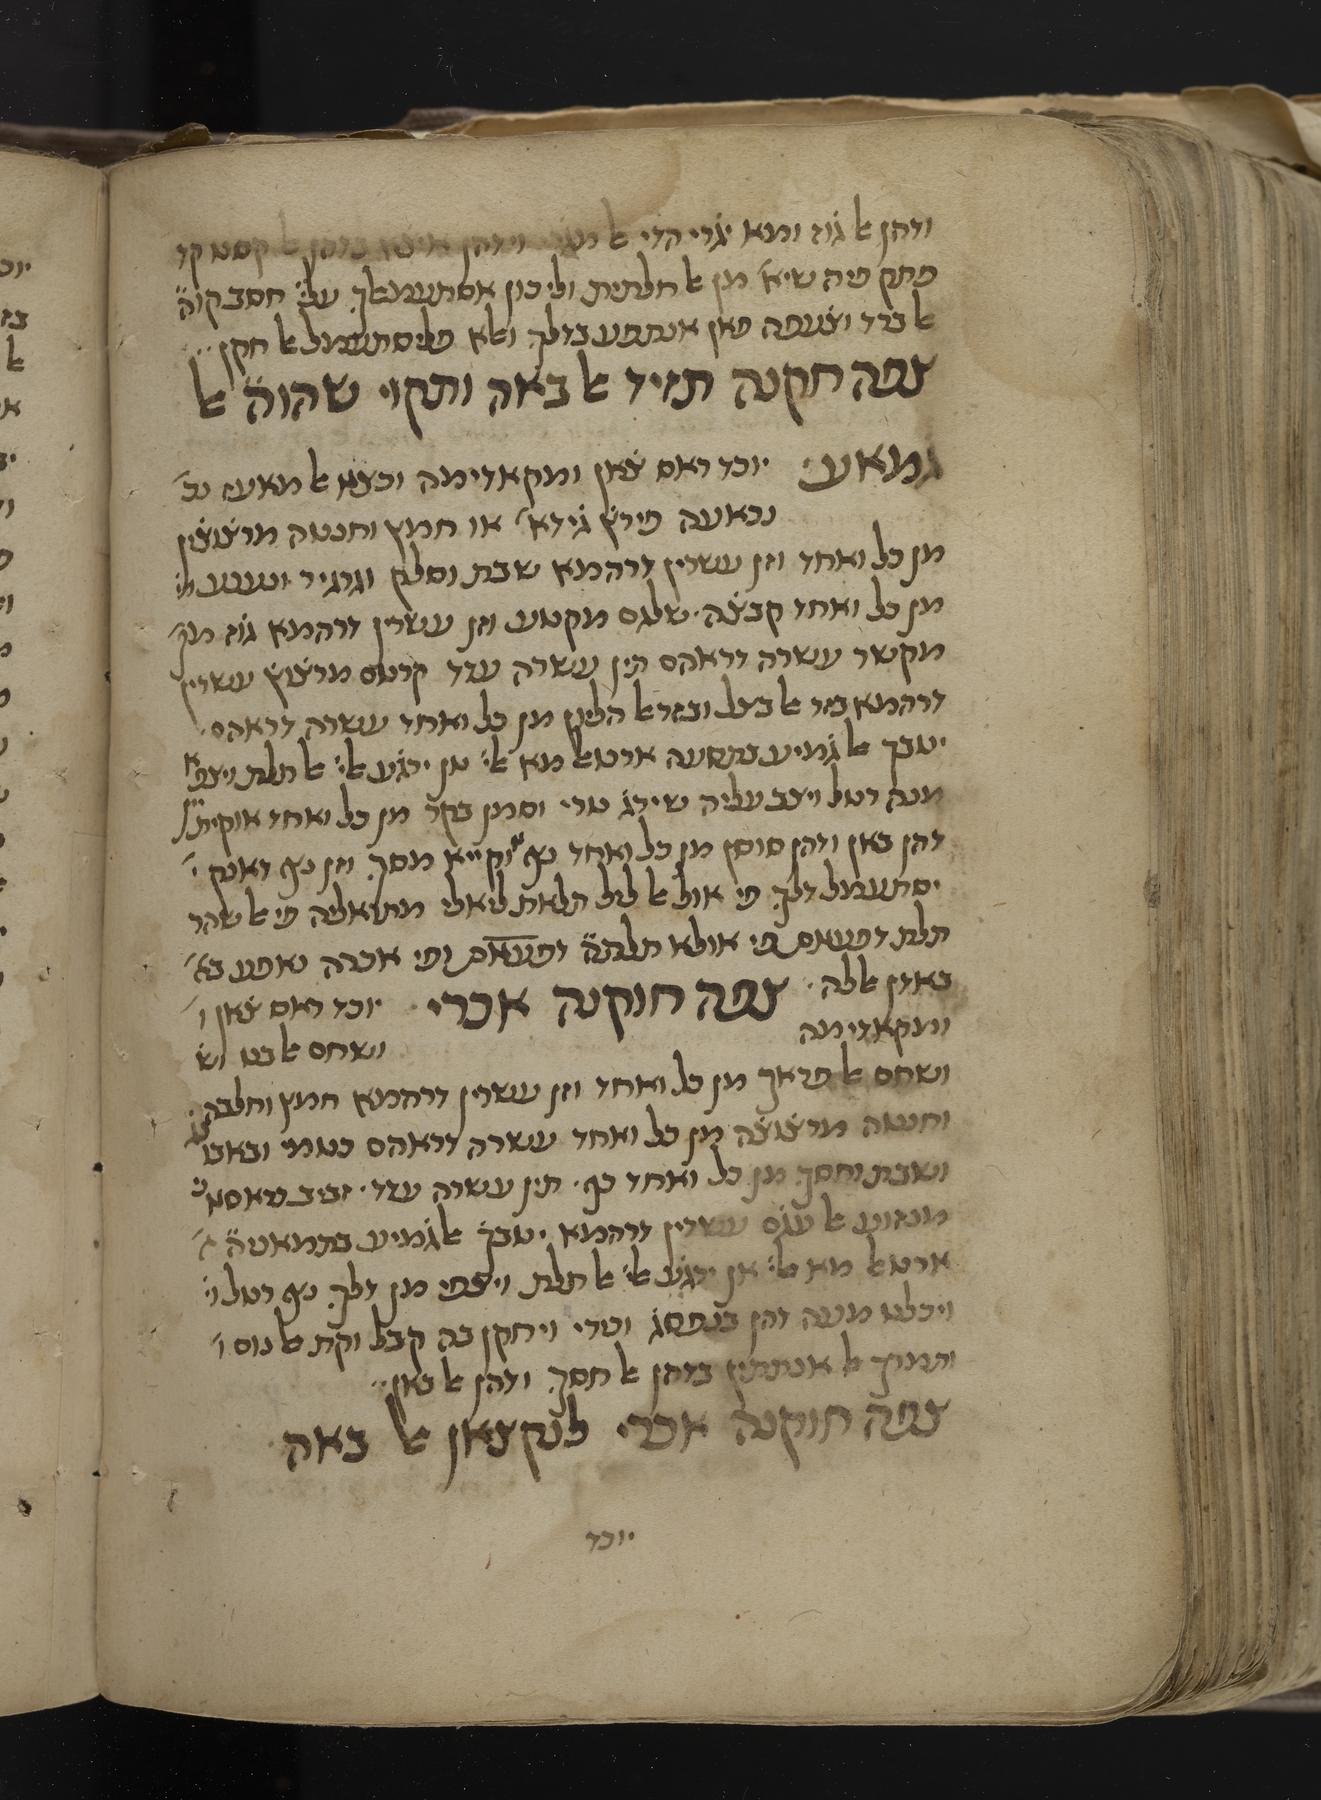 ודהן אל גוז ומא יגרי הדי אל מגרי וידהן איצא בדהן אל קסט קד
פתק פיה שיא׳ מן אל חלתית וליכון אסתעמאלך עלי׳ חסב קוה̈
אל ברד וצעפה פאן אנתפע בדלך ואלא פליסתעמל אל חקן
צפה חקנה תזיד אל באה ותקוי שהוה̈ אל
גמאע׳ יוכד ראס צאן ומקאדימה וכצא אל מאעז
נכאעה פירץ גידא׳ או חמץ וחנטה מרצוצין
מן כל ואחד וזן עשרין דרהמא שבת וסלק וגרגיר
מן כל ואחד קבצה שלגם מקטע וזן עשרין דרהמא גוז
מקשר עשרה דראהם תין עשרה עדד קרטם מרצוץ עשרין
דרהמא בזר אל בצל ובזר אל הליון מן כל ואחד עשרה דראהם
יטבך אל גמיע בתסעה ארטאל מא אלי׳ אן ירגע אלי׳ אל תלת ויצפא
מנה רטל ויצב עליה שירג טרי וסמן בקר מן כל ואחד אוקיתין
דהן באן ודהן סוסן מן כל ואחד נצף וקייא מסך וזן נצף דאנק
יסתעמל דלך פי אול אל ליל תלאת ליאלי מתואליה פי אל שהר
תלת דפעאת פי אולא תלתה̈ דפעאת ופי אכרה נאפע
באדן אללה צפה חוקנה אכרי יוכד ראס צאן ו׳
ומקאדימה ושחם אל בט וש
ושחם אל פראך מן כל ואחד וזן עשרין דרהמא חמץ וחלבה
וחנטה מרצוצה מן כל ואחד עשרה דראהם
ושבת וחסך מן כל ואחד כף תין עשרה עדד זביב
מנזוע אל עגם עשרין דרהמא יטבך אל גמיע בתמאניה̈
ארטאל מא אלי׳ אן ירגע אלי׳ אל תלת ויצפי מן דלך נצף רטל ו׳
ויכלט מעה דהן בנפסג וטרי ויחקן בה קבל וקת אל נום ו׳
ותמרך אל אנתתין בדהן אל חסך ודהן אל באן
צפה חוקנה אכרי לנקצאן אל באה
יוכד